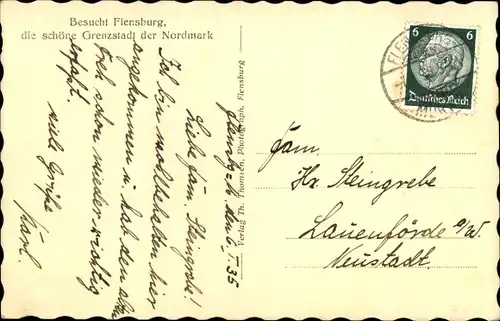 Besucht Flensburg,
die schöne Grenzstadt der Nordmark
Verlag Th. Thomsen, Photograph, Flensburg
Flensburg, den 6. I. 35
Liebe Fam. Steingrebe!
Ich bin wohlbehalten hier
angekommen u. hab den alten
schon wieder richtig
erfaßt.
viele Grüße
Karl.
6 6
Deutsches Reich
Fam.
Hr. Steingrebe
Lauenförde a/W.
Neustadt.